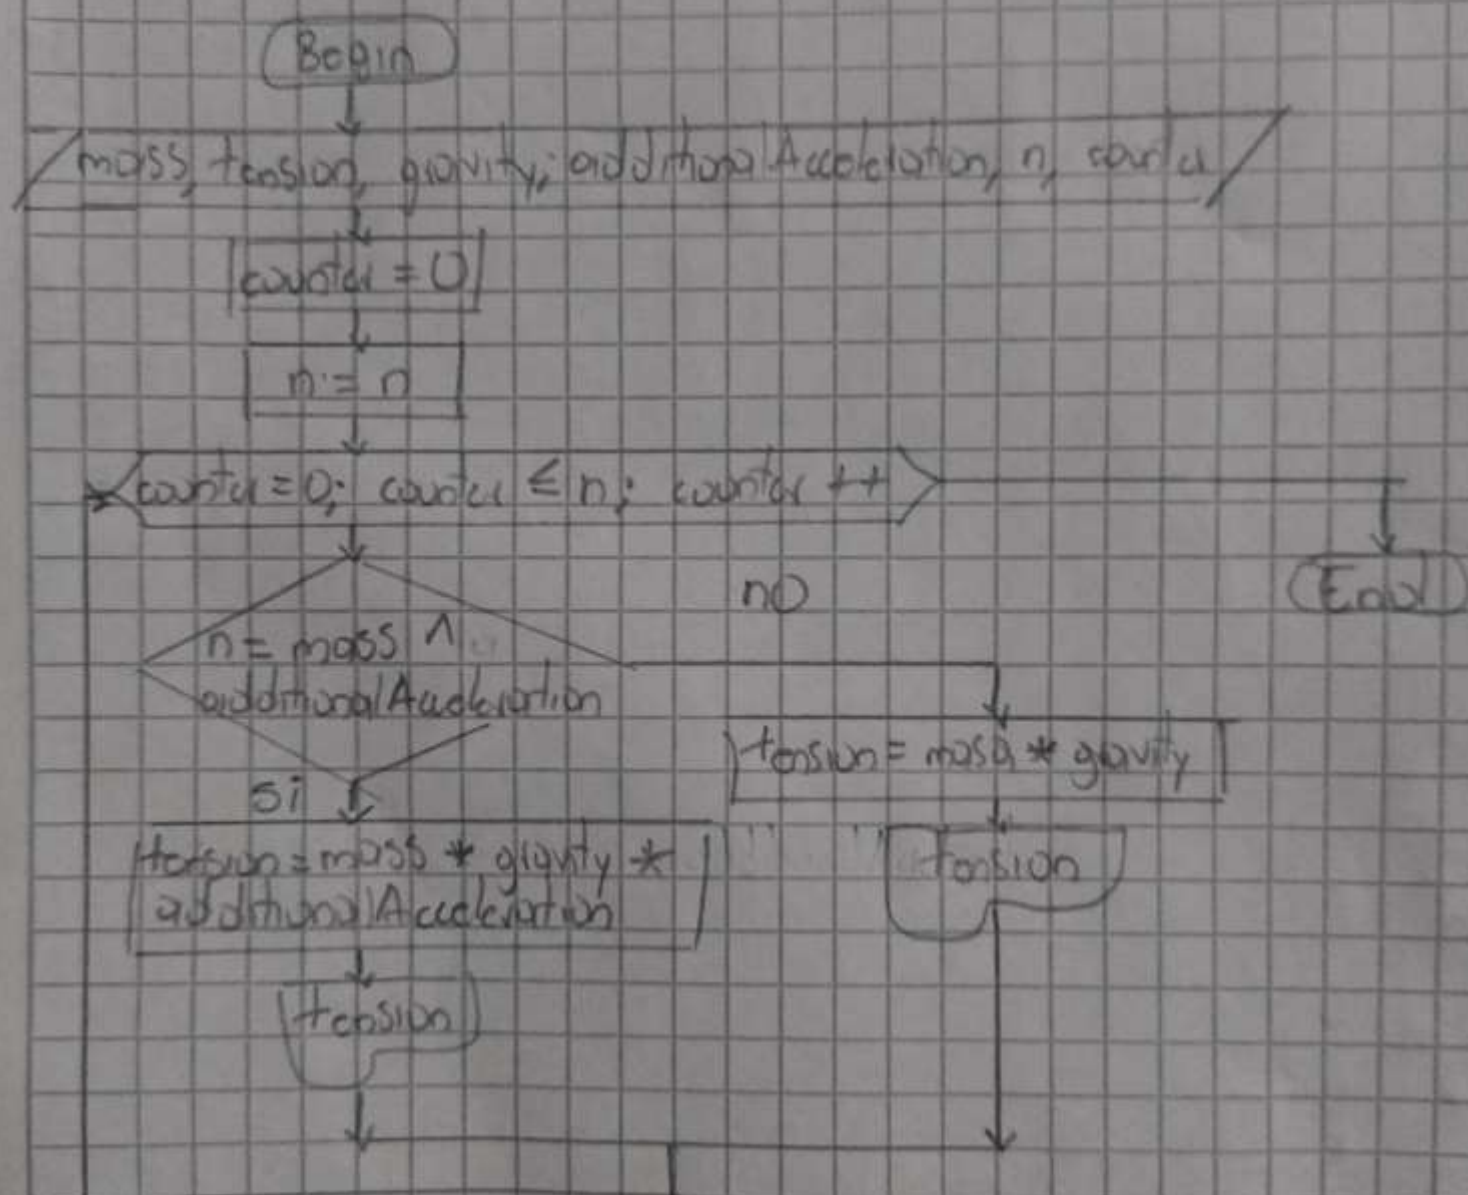 Begin
mass, tension, gravity, additionalAcceleration, n, counter
counter = 0
n = n
counter = 0; counter ≤ n; counter ++
no
End
n = mass ^
additionalAcceleration
tension = mass * gravity
si
tension = mass * gravity *
additionalAcceleration
tension
tension